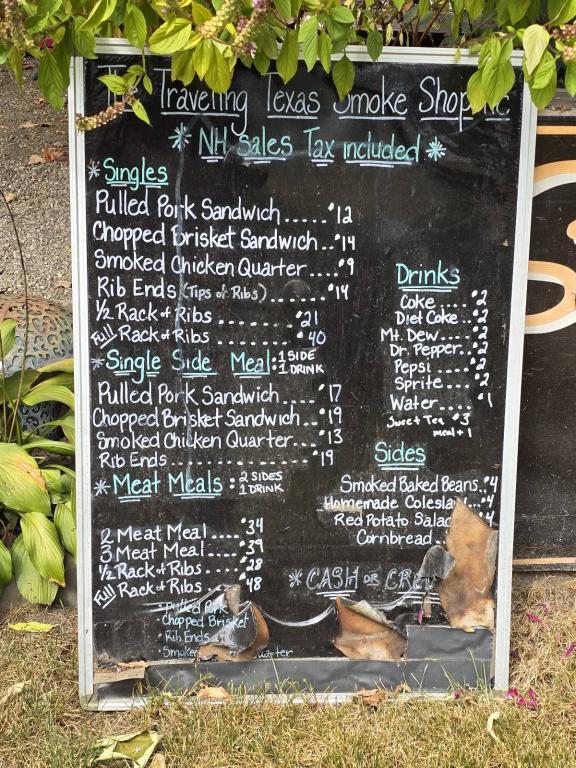 The Traveling Texas Smoke Shop
* NH sales Tax included *
* Singles
Pulled Pork Sandwich ..... $12
Chopped Brisket Sandwich.. $14
Smoked Chicken Quarter .... $9
Rib Ends (Tips of Ribs) ....... $14
1/2 Rack of Ribs ........ $21
Full Rack of Ribs ........ $40
* Single Side Meal: 1 SIDE
1 DRINK
Pulled Pork Sandwich ..... $17
Chopped Brisket Sandwich... $19
Smoked Chicken Quarter.... $13
Rib Ends.................. $19
* Meat Meals : 2 SIDES
1 DRINK
2 Meat Meal ..... $34
3 Meat Meal ..... $39
1/2 Rack of Ribs ..... $28
Full Rack of Ribs ..... $48
Pulled Pork
Chopped Brisket
Rib Ends
Drinks
Coke..... $2
Diet Coke... $2
Mt. Dew.... $2
Dr. Pepper.. $2
Pepsi ..... $2
Sprite.... $2
Water .... $1
Sweet Tea $3
meal + 1
Sides
Smoked Baked Beans. $4
Homemade $4
Red Potato $4
Cornbread..
* CASH or